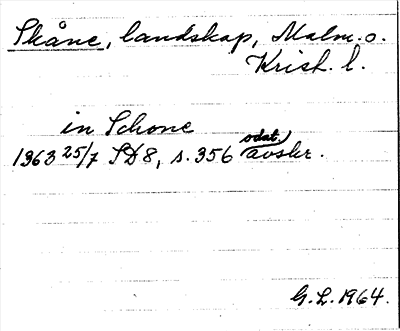 Skåne, landskap, Malm. o.
Krist. l.
in Schone
1363 25/7 SD8, s. 356 odat. avskr.
G. L. 1964.